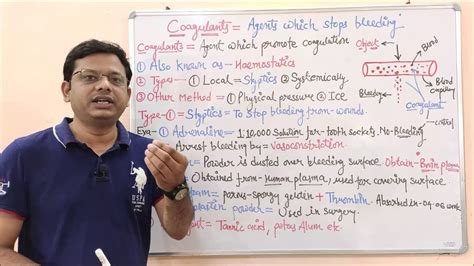 Coagulants = Agents which stops bleeding =
Coagulants = Agent which promote coagulation
① Also known as - Haemostatics
② Type - ① Local = Styptics ② Systemically
③ Other Method = ① Physical pressure ② Ice
Type-① = Styptics = To Stop bleeding from-wounds.
Exa- ① Adrenaline = 1:10,000 Solution for-tooth sockets, No-Bleeding
Arrest bleeding by = vasoconstruction
= Powder is dusted over bleeding surface
Obtain-Bovine plasma
Obtained from-Human plasma, used for covering surface
foam = porous-spongy gelatin + Thrombin. Absorbed in-04-06 week
plastin powder = Used in surgery.
gent = Tannic acid, potas Alum etc.
Object
Blood
Bleeding
Blood capillary
Coagulant
U.S. POLO
USPA